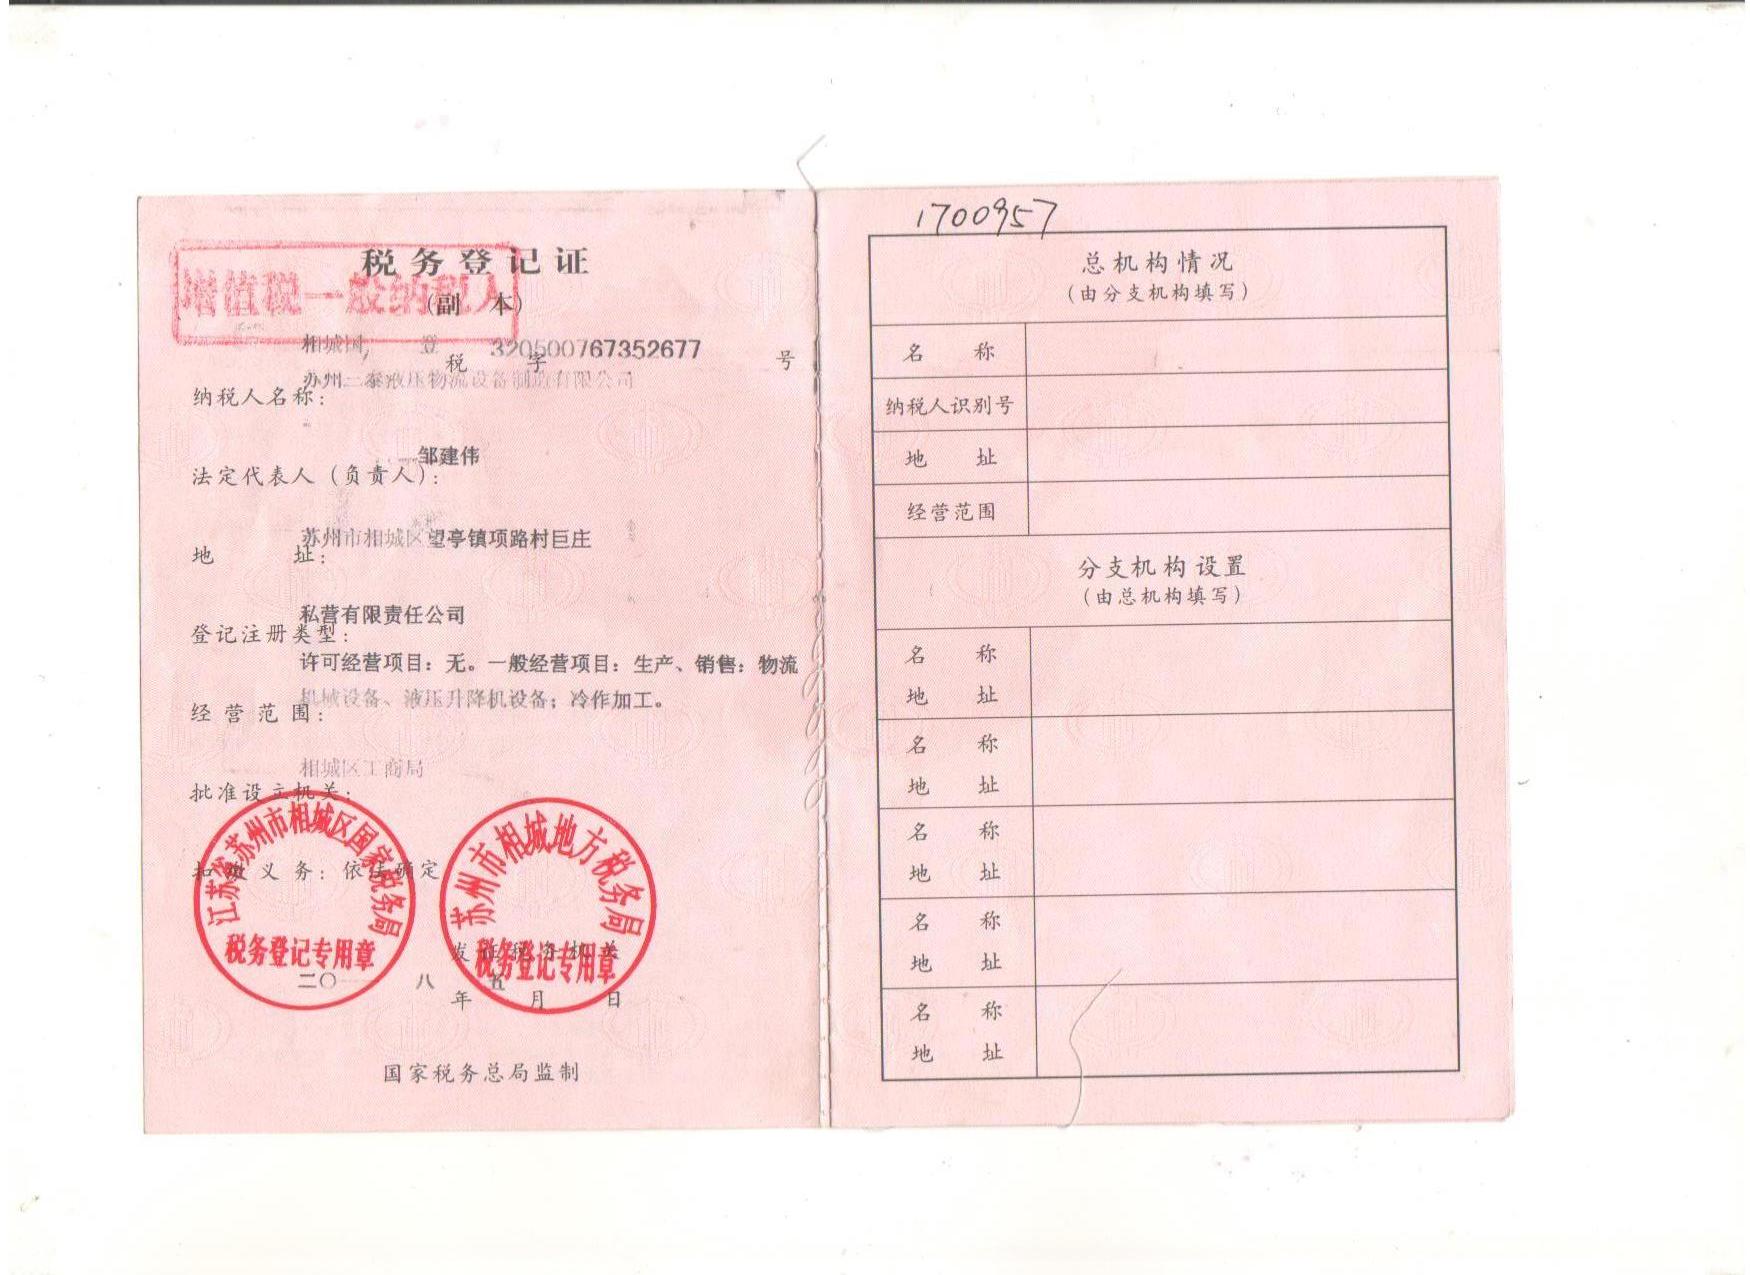 税务登记证
(副 本)
增值税一般纳税人
相城国 登 320500767352677
税 字 号
苏州三泰液压物流设备制造有限公司
纳税人名称:
邹建伟
法定代表人(负责人):
苏州市相城区望亭镇项路村巨庄
地 址:
私营有限责任公司
登记注册类型:
许可经营项目:无。一般经营项目:生产、销售:物流
机械设备、液压升降机设备;冷作加工。
经营范围:
相城区工商局
批准设立机关:
扣缴义务:依法确定
江苏省苏州市相城区国家税务局
税务登记专用章
苏州市相城地方税务局
税务登记专用章
发证税务机关
二〇一一 八 五
年 月 日
国家税务总局监制
1700957
总机构情况
(由分支机构填写)
名 称
纳税人识别号
地 址
经营范围
分支机构设置
(由总机构填写)
名 称
地 址
名 称
地 址
名 称
地 址
名 称
地 址
名 称
地 址